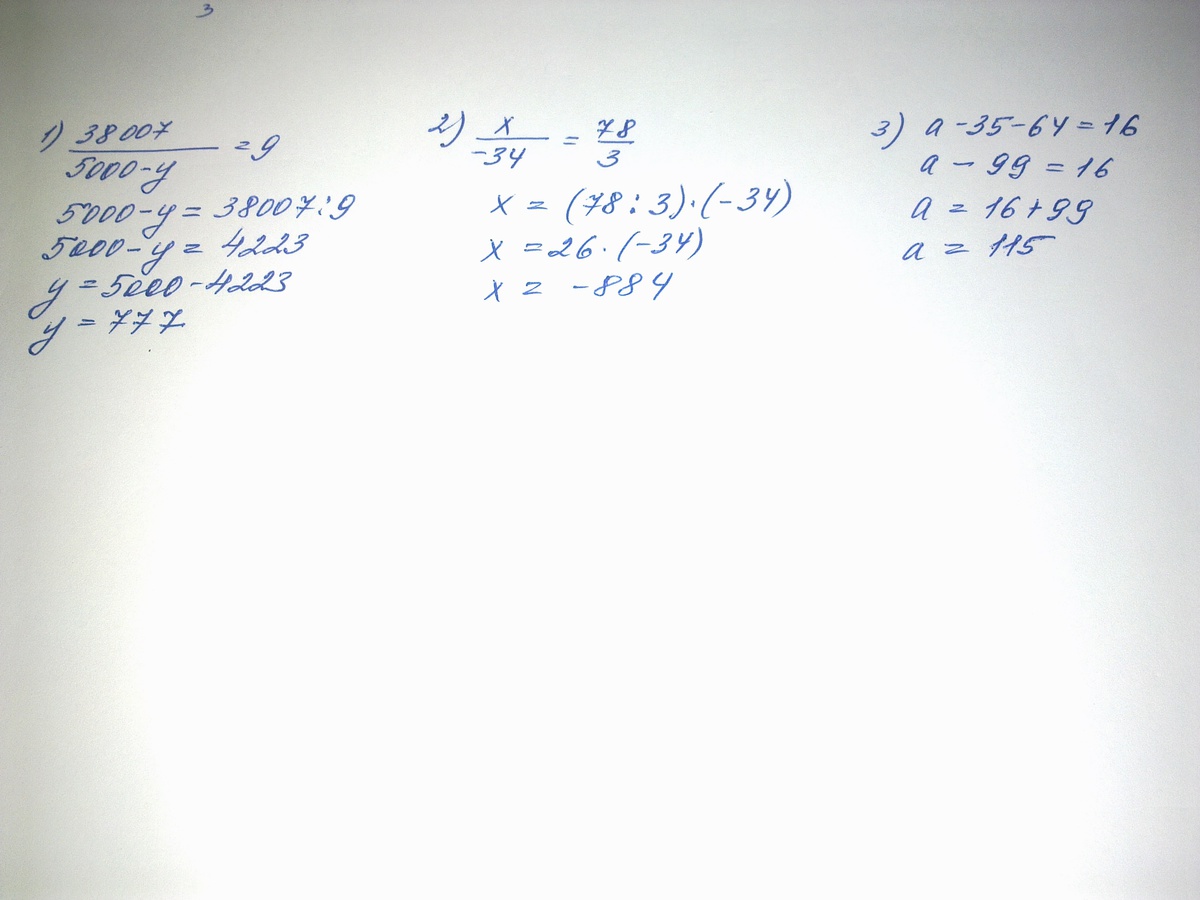 3
1) 38007/(5000-y) = 9
5000-y = 38007:9
5000-y = 4223
y = 5000-4223
y = 777
2) x/-34 = 78/3
x = (78:3)·(-34)
x = 26·(-34)
x = -884
3) a-35-64=16
a - 99 = 16
a = 16+99
a = 115